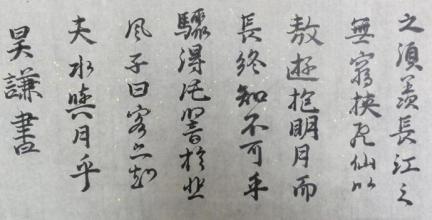 之須羨長江之
無窮挾飛仙以
遨遊抱明月而
長終知不可乎
驟得托響於悲
風子曰客亦知
夫水與月乎
昊謙書